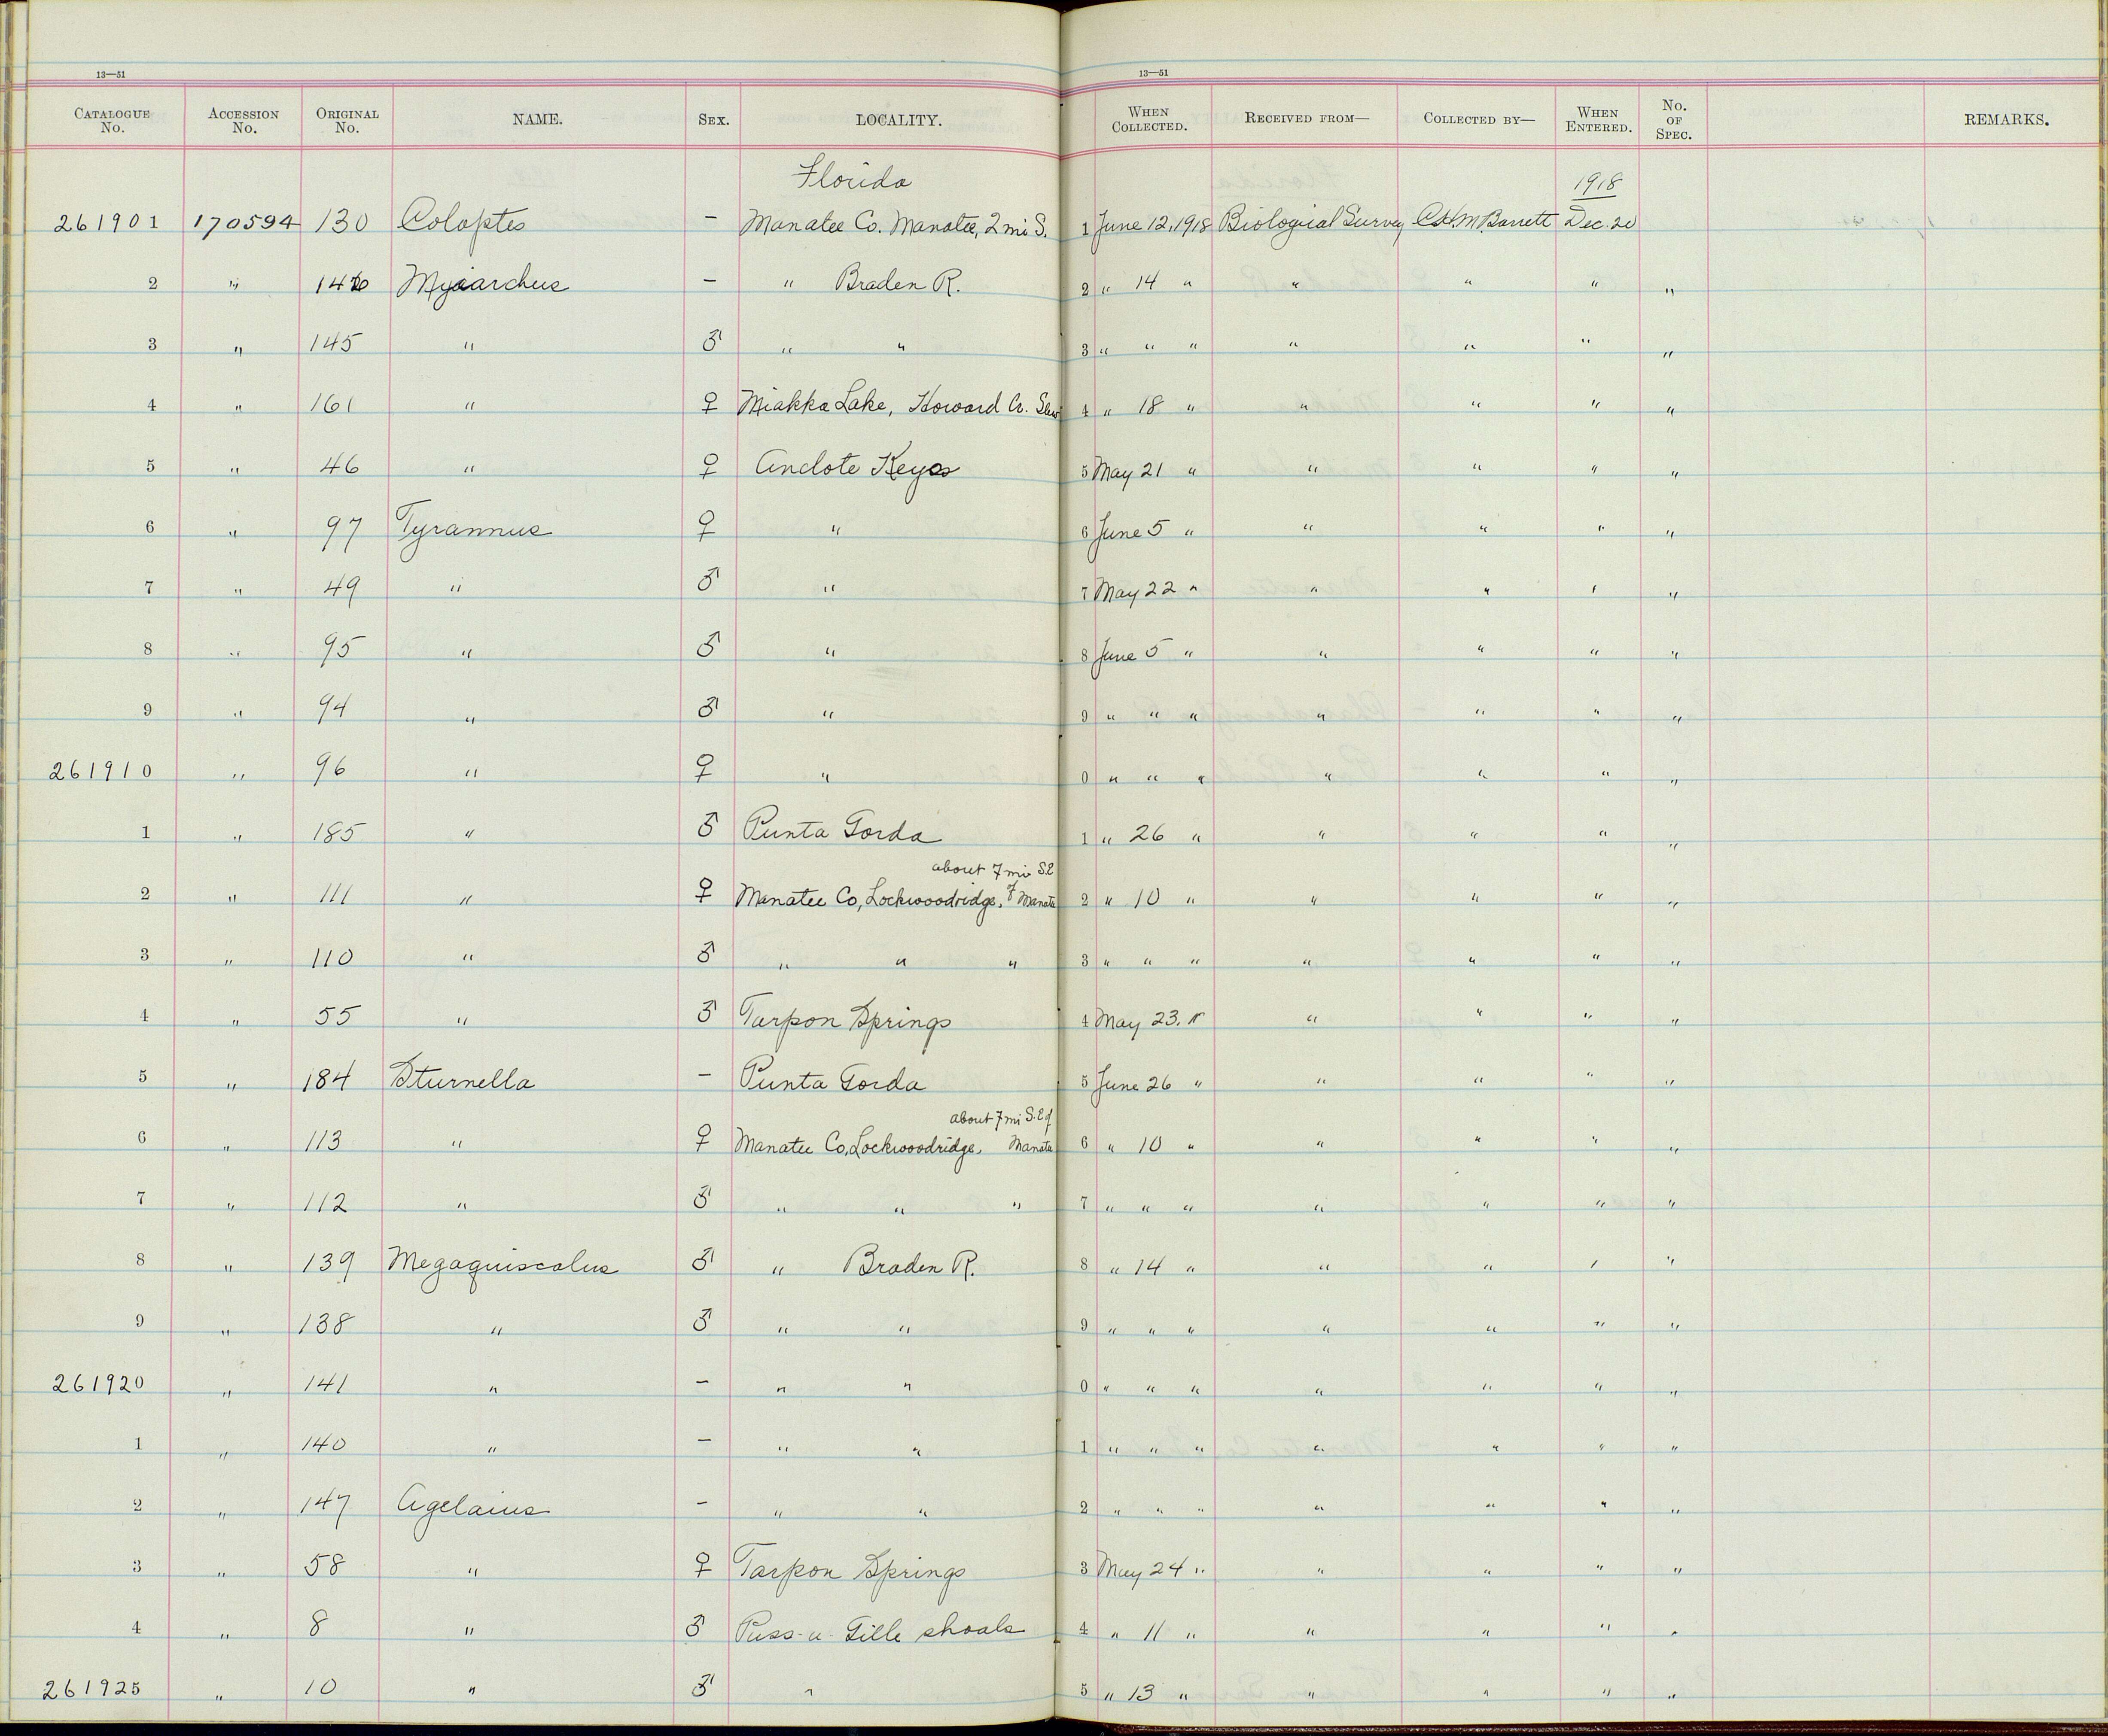 13—51 13—51
CATALOGUE No. ACCESSION No. ORIGINAL No. NAME. SEX. LOCALITY. WHEN COLLECTED. RECEIVED FROM— COLLECTED BY— WHEN ENTERED. No. OF SPEC. REMARKS.
Florida 1918
261901 170594 130 Colaptes – Manatee Co. Manatee, 2 mi S. 1 June 12, 1918 Biological Survey Barrett Dec. 20
2 " Myiarchus – " Braden R. 2 " 14 " " " " "
3 " 145 " ♂ " " 3 " " " " " " "
4 " 161 " ♀ Miakka Lake, Howard Cr. 4 " 18 " " " " "
5 " 46 " ♀ Anclote Keys 5 May 21 " " " " "
6 " 97 Tyrannus ♀ " 6 June 5 " " " " "
7 " 49 " ♂ " 7 May 22 " " " " "
8 " 95 " ♂ " 8 June 5 " " " " "
9 " 94 " ♂ " 9 " " " " " " "
261910 " 96 " ♀ " 0 " " " " " " "
1 " 185 " ♂ Punta Gorda 1 " 26 " " " " "
about 7 mi S.E
2 " 111 " ♀ Manatee Co, Lockwoodridge, of Manatee 2 " 10 " " " " "
3 " 110 " ♂ " " " 3 " " " " " " "
4 " 55 " ♂ Tarpon Springs 4 May 23. " " " " "
5 " 184 Sturnella – Punta Gorda 5 June 26 " " " " "
about 7 mi S.E of
6 " 113 " ♀ Manatee Co, Lockwoodridge, Manatee 6 " 10 " " " " "
7 " 112 " ♂ " " " 7 " " " " " " "
8 " 139 Megaquiscalus ♂ " Braden R. 8 " 14 " " " " "
9 " 138 " ♂ " " 9 " " " " " " "
261920 " 141 " – " " 0 " " " " " " "
1 " 140 " – " " 1 " " " " " " "
2 " 147 Agelaius – " " 2 " " " " " " "
3 " 58 " ♀ Tarpon Springs 3 May 24 " " " " "
4 " 8 " ♂ Pass-a-Gille shoals 4 " 11 " " " " "
261925 " 10 " ♂ " 5 " 13 " " " " "